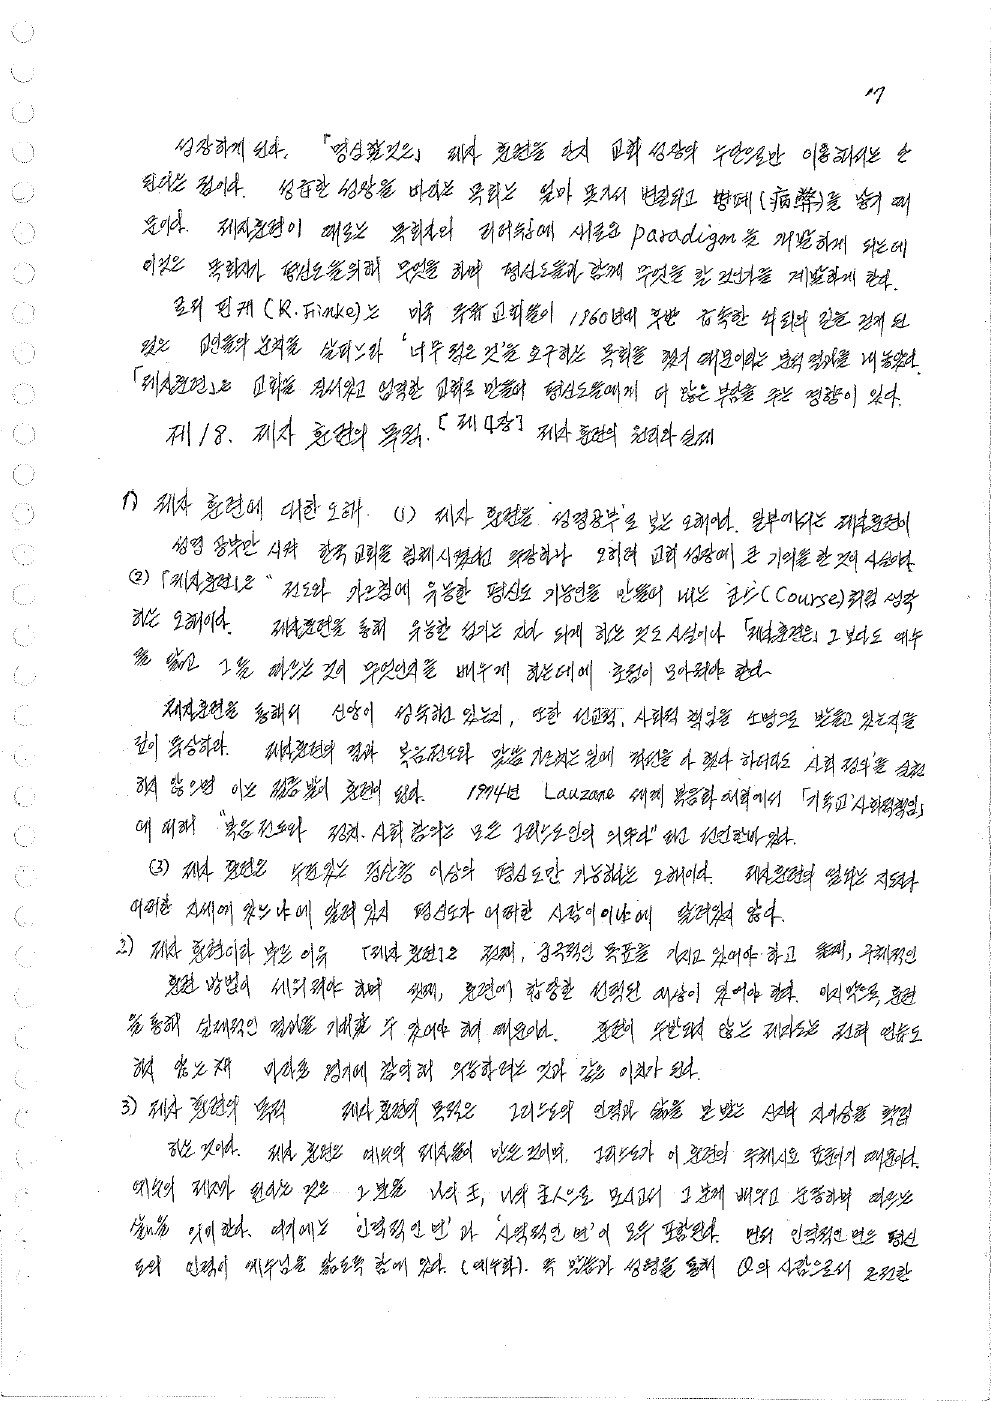 "7
성장하게 된다. 「명심할것은」 제자 훈련을 단지 교회 성장의 수단으로만 이용해서는 안
된다는 점이다. 성급한 성장을 바라는 목회는 얼마 못가서 변질되고 병폐(病弊)를 낳기 때
문이다. 제자훈련이 때로는 목회자의 리더쉽에 새로운 paradigm을 개발하게 되는데
이것은 목회자가 평신도를위해 무엇을 하며 평신도들과 함께 무엇을 할 것인가를 계발하게 한다.
로저 핀케(R. Finke)는 미국 주류 교회들이 1960년대 후반 급속한 쇠퇴의 길을 걷게 된
것은 교인들의 눈치를 살피느라 '너무 적은 것'을 요구하는 목회를 했기 때문이라는 분석 결과를 내놓았다.
「제자훈련」은 교회를 질서있고 엄격한 교회로 만들어 평신도들에게 더 많은 부담을 주는 경향이 있다.
제 18. 제자 훈련의 목적. [제4장] 제자 훈련의 원리와 실제
1) 제자 훈련에 대한 오해. (1) 제자 훈련을 '성경공부'로 보는 오해이다. 일부에서는 제자훈련이
성경 공부만 시켜 한국교회를 침체시켰다고 주장하나 오히려 교회 성장에 큰 기여를 한 것이 사실이다.
(2) 「제자훈련」은 "전도와 가르침에 유능한 평신도 기능인을 만들어 내는 코스(Course)처럼 생각
하는 오해이다. 제자훈련을 통해 유능한 섬기는 자가 되게 하는 것도 사실이나 「제자훈련은」 그보다도 예수
를 닮고 그를 따르는 것이 무엇인지를 배우게 하는데에 초점이 모아져야 한다
제자훈련을 통해서 신앙이 성숙하고 있는지, 또한 선교적, 사회적 책임을 소명으로 받들고 있는지를
깊이 묵상하라. 제자훈련의 결과 복음전도와 말씀 가르치는일에 최선을 다 했다 하더라도 '사회 정의'를 실천
하지 않으면 이는 절름발이 훈련이 된다. 1974년 Lauzane 세계 복음화 대회에서 「기독교 사회적책임」
에 대해 "복음 전도와 정치·사회 참여는 모든 그리스도인의 의무다" 라고 선언한바 있다.
(3) 제자 훈련은 수준있는 중산층 이상의 평신도만 가능하다는 오해이다. 제자훈련의 열매는 지도자가
어떠한 자세에 있느냐에 달려 있지 평신도가 어떠한 사람이이냐에 달려있지 않다.
2) 제자 훈련이라 부르는 이유 「제자 훈련」은 첫째, 궁극적인 목표를 가지고 있어야 하고 둘째, 구체적인
훈련 방법이 세워져야 하며 셋째, 훈련에 합당한 선택된 대상이 있어야 한다. 마지막으로, 훈련
을 통해 실제적인 결과를 기대할 수 있어야 하기 때문이다. 훈련이 수반되지 않는 제자도는 전혀 연습도
하지 않는채 마라톤 경기에 참여해 우승하려는 것과 같은 이치가 된다.
3) 제자 훈련의 목적 제자 훈련의 목적은 그리스도의 인격과 삶을 본 받는 신자의 자아상을 확립
하는 것이다. 제자 훈련은 예수의 제자들이 받은 것이며, 그리스도가 이 훈련의 주체시요 표준이기 때문이다.
예수의 제자가 된다는 것은 그 분을 나의 주, 나의 주인으로 모시고서 그 분께 배우고 순종하며 따르는
삶을 의미한다. 여기에는 '인격적인 면'과 '사역적인 면'이 모두 포함된다. 먼저 인격적인 면은 평신
도의 인격이 예수님을 닮도록 함에 있다. (예수화). 즉 말씀과 성령을 통해 의 사람으로서 온전한